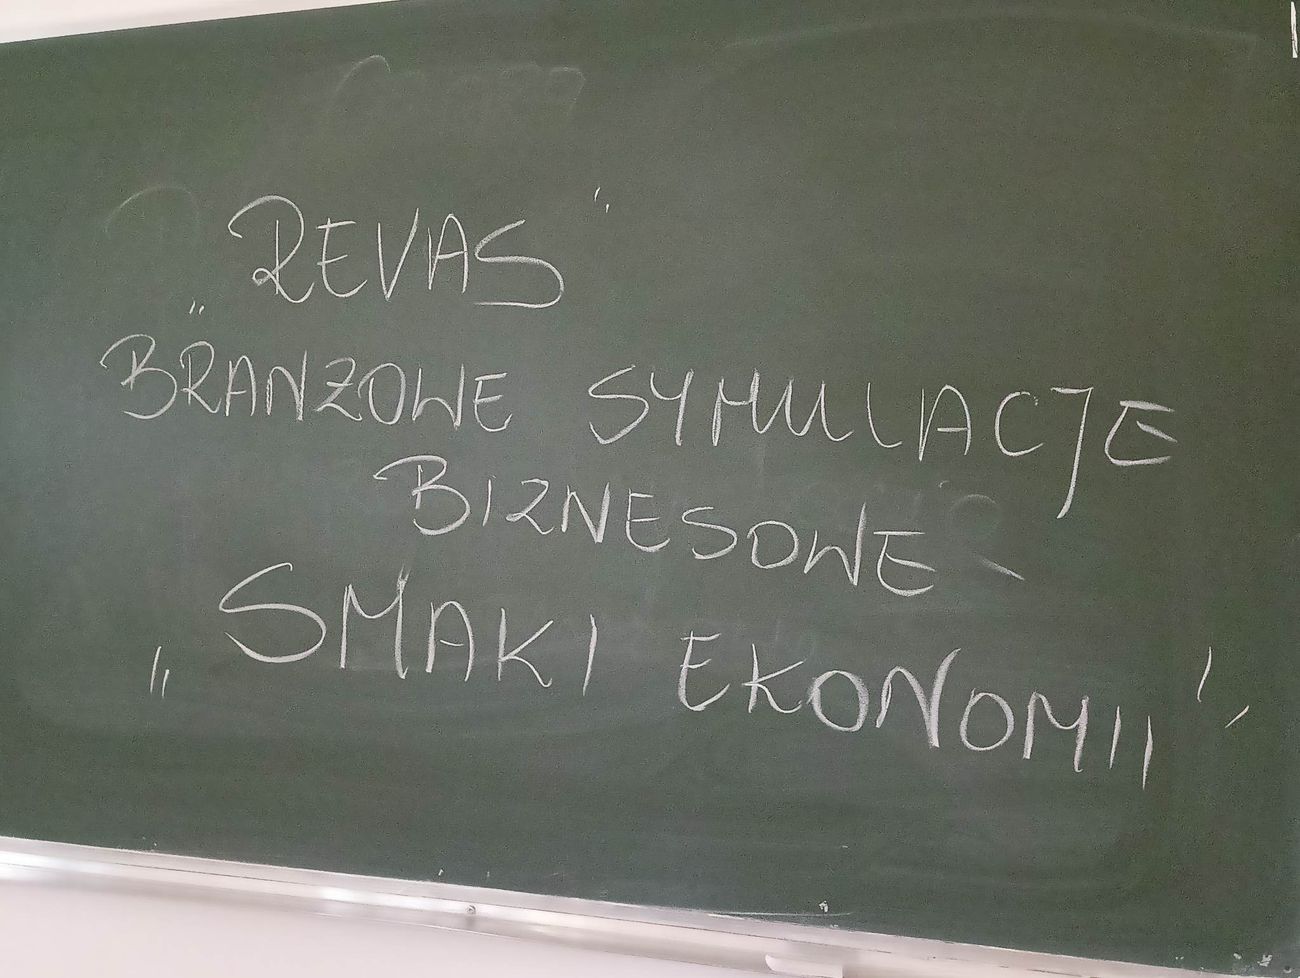 „REVAS"
BRANZOWE SYMULACJE
BIZNESOWE
„SMAKI EKONOMII"